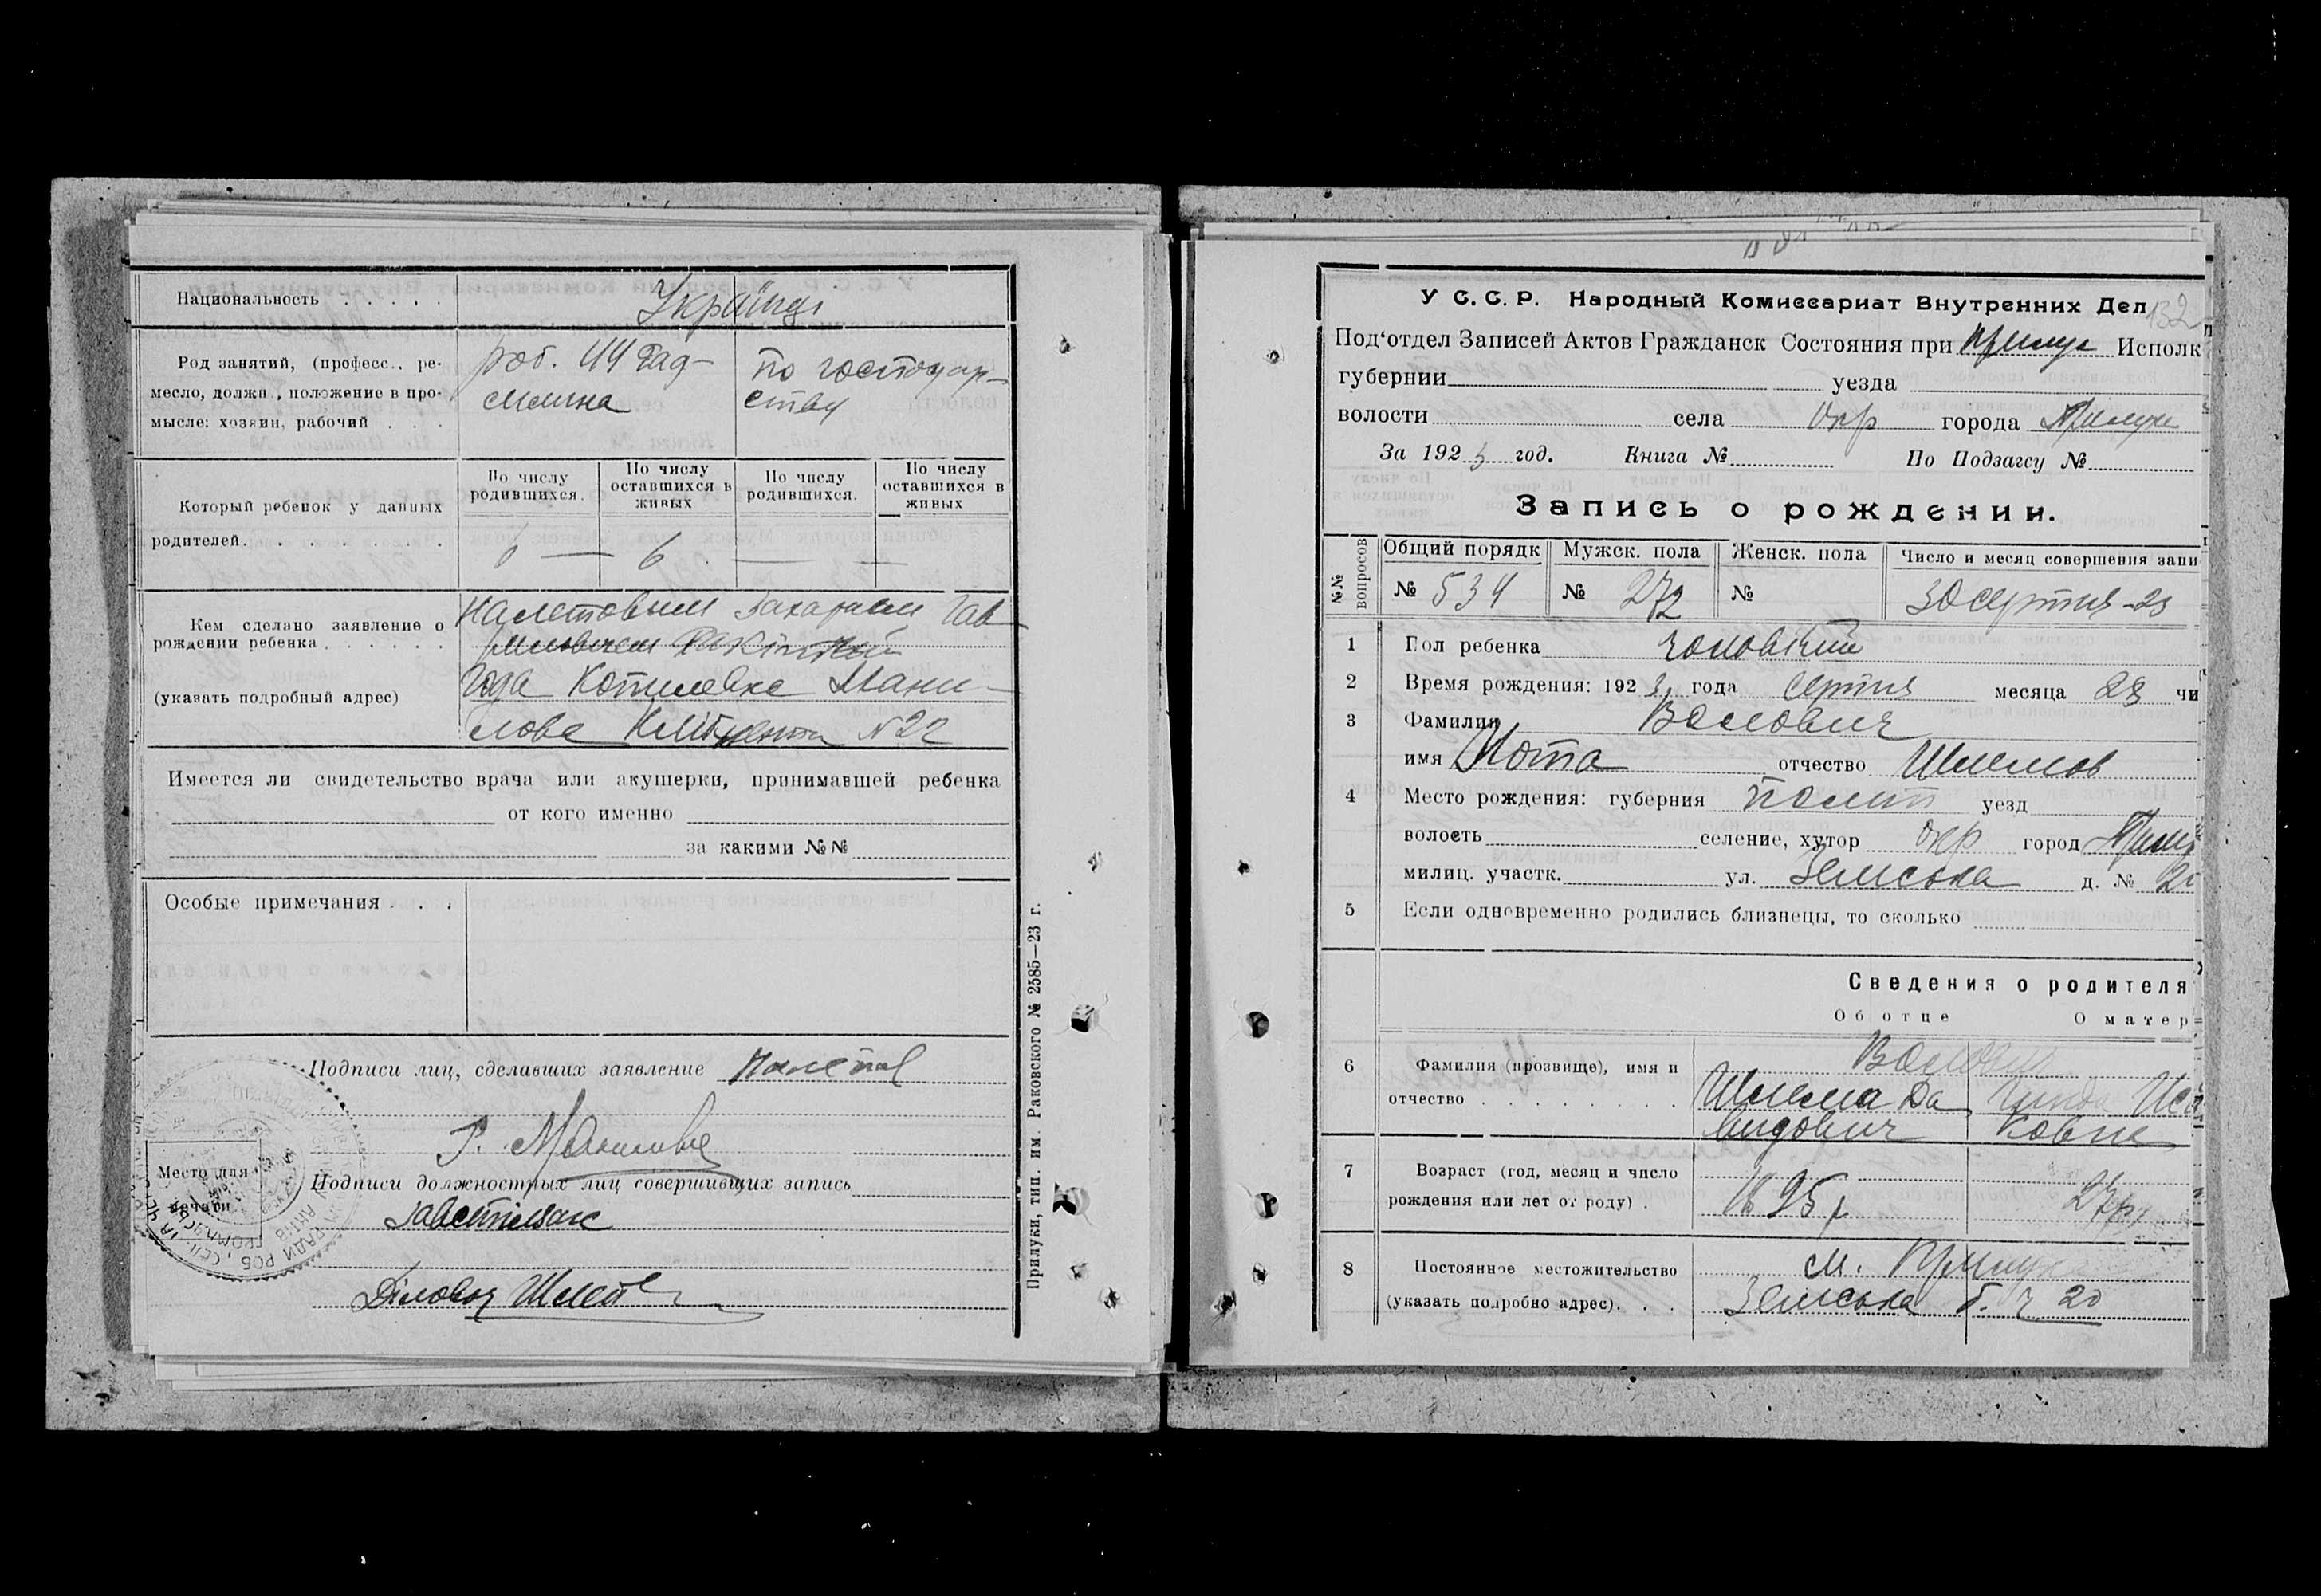 Национальность Українці
Род занятий, (професс., ре-
месло, должн., положение в про-
мысле: хозяин, рабочий
роб.
по господар-
ству
Который ребенок у данных
родителей
По числу
родившихся.
По числу
оставшихся в
живых
По числу
родившихся.
По числу
оставшихся в
живых
6 — 6 — —
Кем сделано заявление о
рождении ребенка
(указать подробный адрес)
Налетовым Захарием Гав
№ 22
Имеется ли свидетельство врача или акушерки, принимавшей ребенка
от кого именно
за какими №№
Особые примечания
Подписи лиц, сделавших заявление Налетов
Место для
печати
Подписи должностных лиц совершивших запись
Завстолзаг
Діловод
Прилуки, тип. им. Раковского № 2585—23 г.
132
У С. С. Р. Народный Комиссариат Внутренних Дел
Под'отдел Записей Актов Гражданск Состояния при Прилук Исполк
губернии уезда
волости села Окр города Прилуки
За 1923 год. Книга № По Подзагсу №
Запись о рождении.
№№ вопросов
Общий порядк
№ 534
Мужск. пола
№ 272
Женск. пола
№
Число и месяц совершения запи
30 серпня-23
1 Пол ребенка чоловічий
2 Время рождения: 1923 года серпня месяца 28 чи
3 Фамилия Волович
имя Нота отчество Шлемов
4 Место рождения: губерния Полт уезд
волость селение, хутор Окр город Прилу
милиц. участк. ул. Земська д. № 20
5 Если одновременно родились близнецы, то сколько
Сведения о родителя
Об отце О матер
6 Фамилия (прозвище), имя и
отчество
Волович
Шлема Да
видович
Иса
ковна
7 Возраст (год, месяц и число
рождения или лет от роду)
25 р
27 р
8 Постоянное местожительство
(указать подробно адрес)
м. Прилуки
Земська б. ч 20